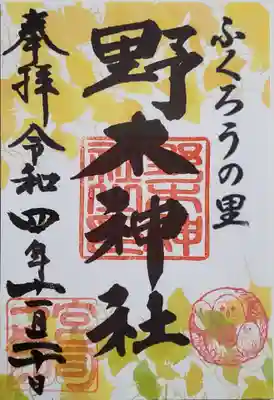 ふくろうの里
野木神社
奉拝 令和四年十一月二十日